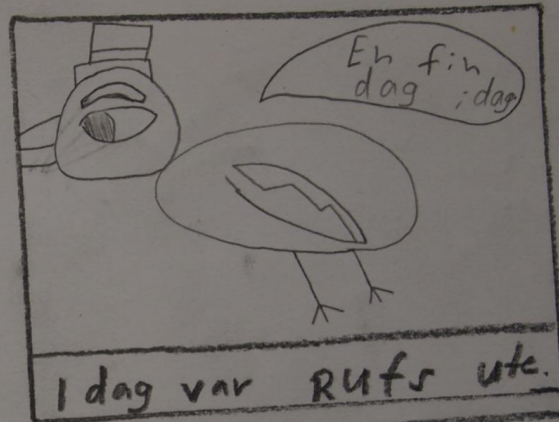 En fin
dag idag
I dag var RUfs ute.